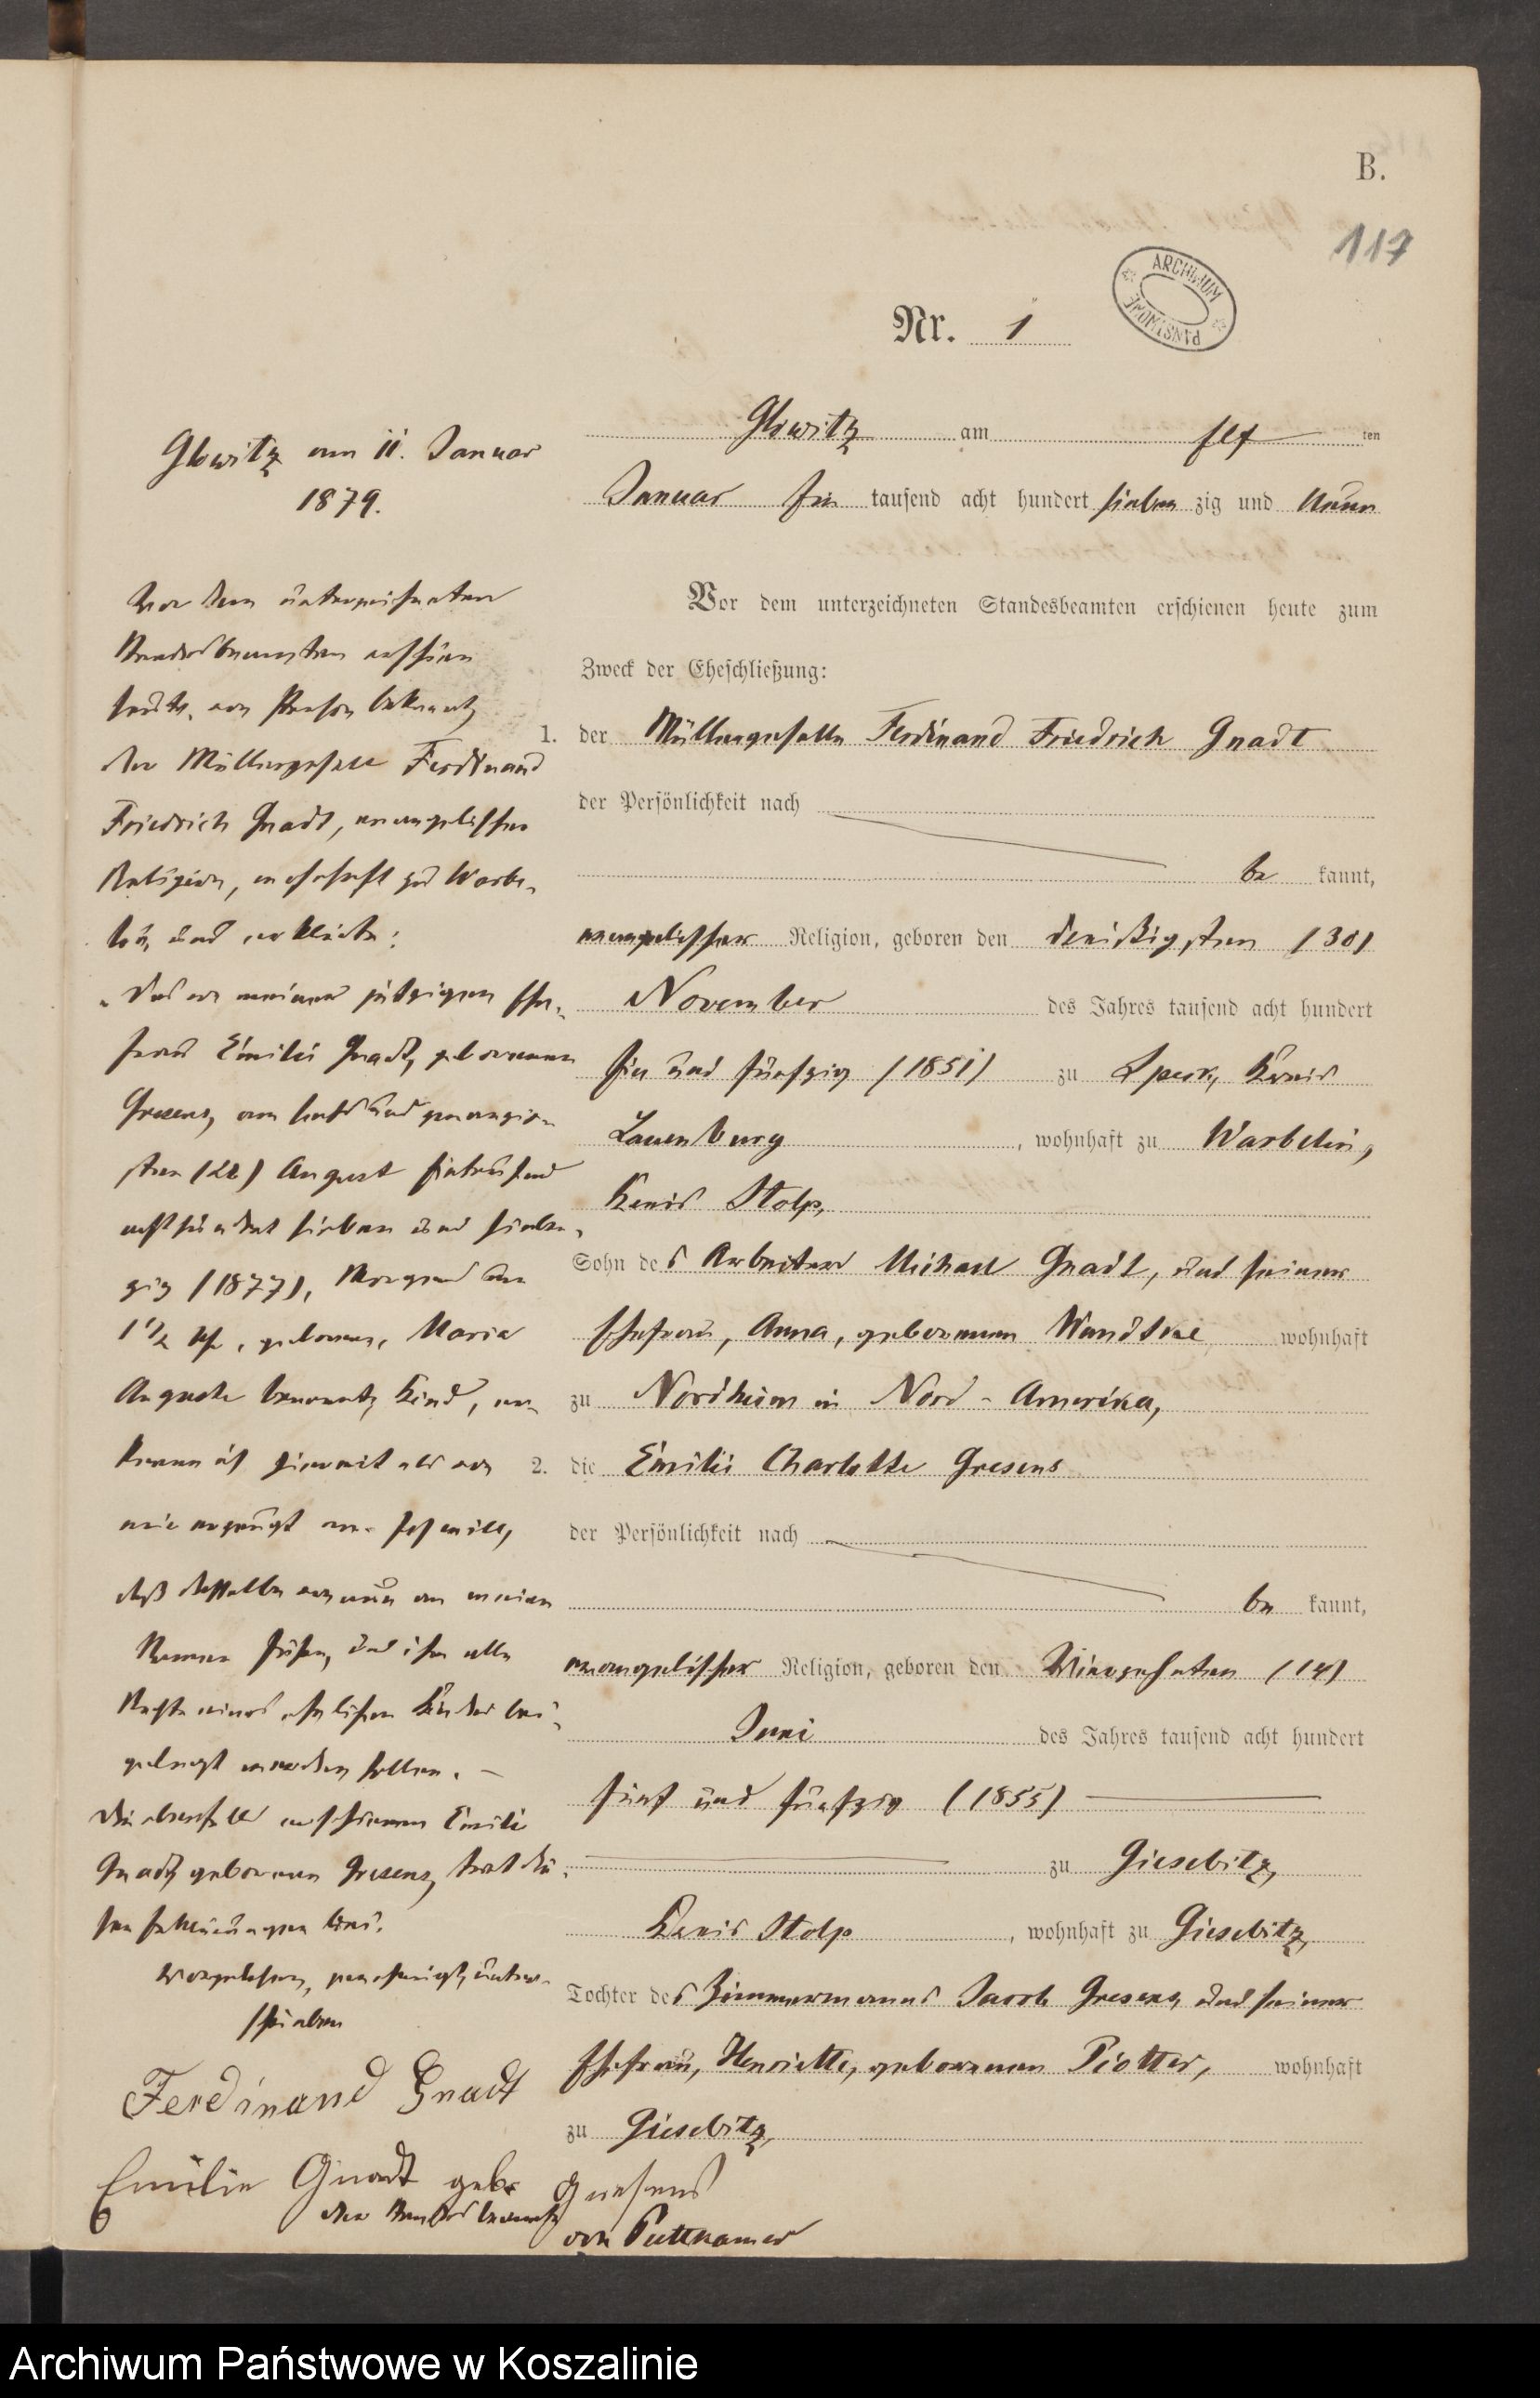 B.
117
ARCHIWUM PAŃSTWOWE
Nr. 1
Glowitz am elf ten
Januar Ein tausend acht hundert sieben zig und neun
Vor dem unterzeichneten Standesbeamten erschienen heute zum
Zweck der Eheschließung:
1. der Müllergeselle Ferdinand Friedrich Gnadt
der Persönlichkeit nach
be kannt,
evangelischer Religion, geboren den dreißigsten (30)
November des Jahres tausend acht hundert
Ein und fünfzig (1851) zu Speck, Kreis
Lauenburg, wohnhaft zu Warbelin,
Kreis Stolp,
Sohn des Arbeiters Michael Gnadt, und seiner
Ehefrau, Anna, geborenen Wandtke wohnhaft
zu Nordheim in Nord-Amerika,
2. die Emilie Charlotte Gresens
der Persönlichkeit nach
be kannt,
evangelischer Religion, geboren den Vierzehnten (14)
Juni des Jahres tausend acht hundert
fünf und fünfzig (1855)
zu Giesebitz,
Kreis Stolp, wohnhaft zu Giesebitz,
Tochter des Zimmermanns Jacob Gresens, und seiner
Ehefrau, Henriette, geborenen Piotter, wohnhaft
zu Giesebitz,
Glowitz am 11. Januar
1879.
Vor dem unterzeichneten
Standesbeamten erschien
heute, von Person bekannt,
der Müllergeselle Ferdinand
Friedrich Gnadt, evangelischer
Religion, wohnhaft zu Warbe-
lin, und erklärte:
"Das von meiner jetzigen Ehe-
frau Emilie Gnadt, geborenen
Gresens, am acht und zwanzig-
sten (28) August Eintausend
achthundert sieben und sieben-
zig (1877), Morgens um
1 1/2 Uhr, geborene, Maria
Auguste benannte, Kind, er-
kenne ich hiermit als von
mir erzeugt an. Ich will,
daß dasselbe von nun an meinen
Namen führe, und ihm alle
Rechte eines ehelichen Kindes bei-
gelegt werden sollen. —
Die ebenfalls erschienene Emilie
Gnadt, geborenen Gresens, trat die-
sen Erklärungen bei.
Vorgelesen, genehmigt, unter-
schrieben
Ferdinand Gnadt
Emilie Gnadt gebr Gresens
der Standesbeamte
von Puttkamer
Archiwum Państwowe w Koszalinie